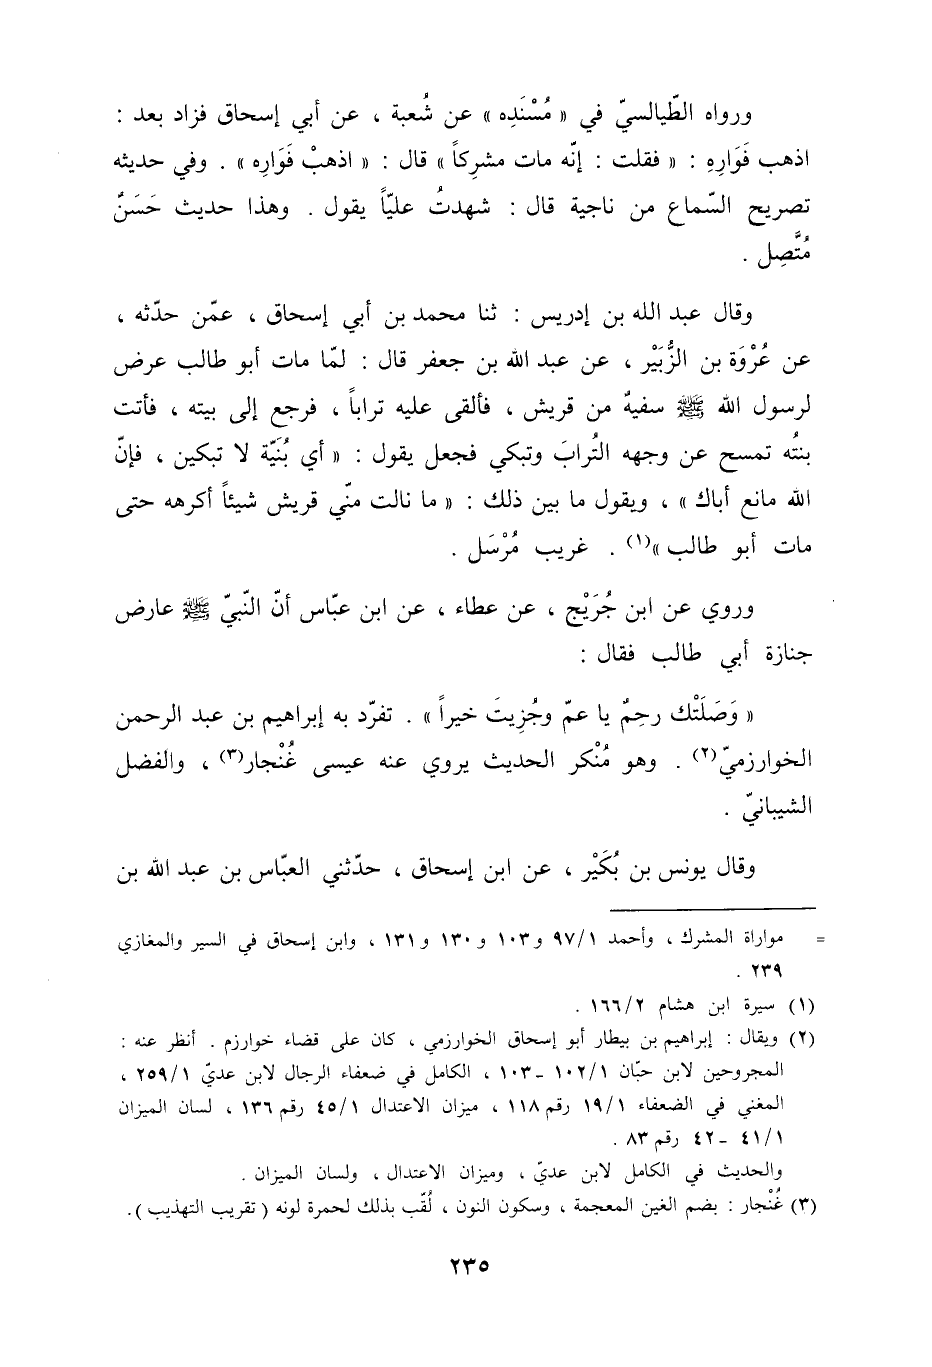 ورواه الطّيالسيّ في « مُسْنَدِه » عن شُعبة ، عن أبي إسحاق فزاد بعد :
اذهب فَوَارِهِ : « فقلت : إنّه مات مشرِكاً » قال : « اذهبْ فَوَارِه » . وفي حديثه
تصريح السّماع من ناجية قال : شهدتُ عليّاً يقول . وهذا حديث حَسَنٌ
مُتَّصِل .
وقال عبد الله بن إدريس : ثنا محمد بن أبي إسحاق ، عمّن حدّثه ،
عن عُرْوَة بن الزُّبَيْر ، عن عبد الله بن جعفر قال : لمّا مات أبو طالب عرض
لرسول الله ﷺ سفيهٌ من قريش ، فألقى عليه تراباً ، فرجع إلى بيته ، فأتت
بنتُه تمسح عن وجهه التُرابَ وتبكي فجعل يقول : « أي بُنَيّة لا تبكين ، فإنّ
الله مانع أباك » ، ويقول ما بين ذلك : « ما نالت منّي قريش شيئاً أكرهه حتى
مات أبو طالب »(١) . غريب مُرْسَل .
وروي عن ابن جُرَيْج ، عن عطاء ، عن ابن عبّاس أنّ النّبيّ ﷺ عارض
جنازة أبي طالب فقال :
« وَصَلَتْك رحِمٌ يا عمّ وجُزِيتَ خيراً » . تفرّد به إبراهيم بن عبد الرحمن
الخوارزميّ(٢) . وهو مُنْكر الحديث يروي عنه عيسى غُنْجار(٣) ، والفضل
الشيبانيّ .
وقال يونس بن بُكَيْر ، عن ابن إسحاق ، حدّثني العبّاس بن عبد الله بن
= مواراة المشرك ، وأحمد ٩٧/١ و١٠٣ و١٣٠ و١٣١ ، وابن إسحاق في السير والمغازي
٢٣٩ .
(١) سيرة ابن هشام ١٦٦/٢ .
(٢) ويقال : إبراهيم بن بيطار أبو إسحاق الخوارزمي ، كان على قضاء خوارزم . أنظر عنه :
المجروحين لابن حبّان ١٠٢/١ ـ ١٠٣ ، الكامل في ضعفاء الرجال لابن عديّ ٢٥٩/١ ،
المغني في الضعفاء ١٩/١ رقم ١١٨ ، ميزان الاعتدال ٤٥/١ رقم ١٣٦ ، لسان الميزان
٤١/١ ـ ٤٢ رقم ٨٣ .
والحديث في الكامل لابن عديّ ، وميزان الاعتدال ، ولسان الميزان .
(٣) غُنْجار : بضم الغين المعجمة ، وسكون النون ، لُقّب بذلك لحمرة لونه ( تقريب التهذيب ).
٢٣٥